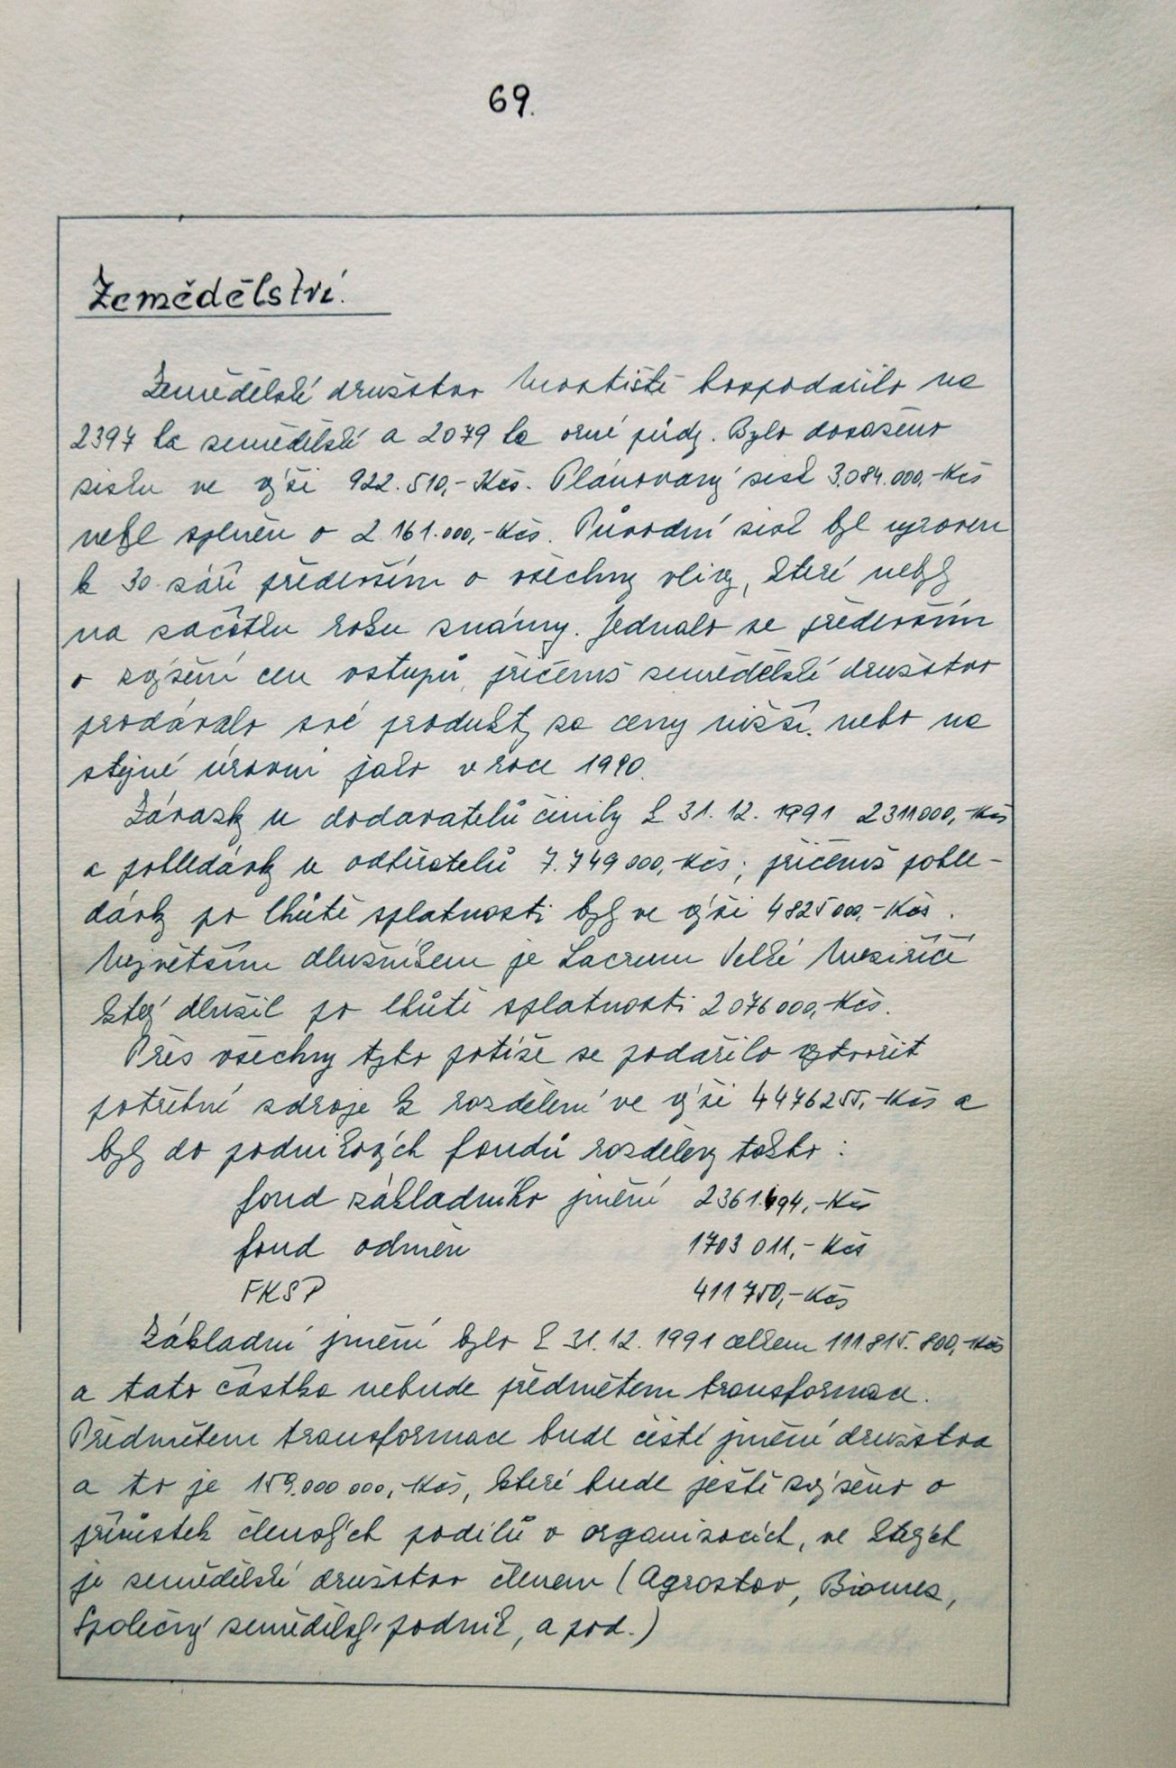 69.
Zemědělství.
Zemědělské družstvo Mostiště hospodařilo na
2397 ha zemědělské a 2079 ha orné půdy. Bylo dosaženo
zisku ve výši 922.510,- Kčs. Plánovaný zisk 3.084.000,- Kčs
nebyl splněn o 2.161.000,- Kčs. Původní zisk byl upraven
k 30. září především o všechny vlivy, které nebyly
na začátku roku známy. Jednalo se především
o zvýšení cen vstupů, přičemž zemědělské družstvo
prodávalo své produkty za ceny nižší, nebo na
stejné úrovni jako v roce 1990.
Závazky u dodavatelů činily k 31. 12. 1991 2311000,- Kčs
a pohledávky u odběratelů 7.749 000,- Kčs; přičemž pohle-
dávky po lhůtě splatnosti byly ve výši 4825 000,- Kčs.
Největším dlužníkem je Lacrum Velké Meziříčí
který dlužil po lhůtě splatnosti 2 076 000,- Kčs.
Přes všechny tyto potíže se podařilo vytvořit
potřebné zdroje k rozdělení ve výši 4476255,- Kčs a
byly do podnikových fondů rozděleny takto:
fond základního jmění 2361.494,- Kčs
fond odměn 1703 011,- Kčs
FKSP 411 750,- Kčs
Základní jmění bylo k 31. 12. 1991 celkem 111.815.800,- Kčs
a tato částka nebude předmětem transformace.
Předmětem transformace bude čisté jmění družstva
a to je 159.000 000,- Kčs, které bude ještě zvýšeno o
přírůstek členských podílů v organizacích, ve kterých
je zemědělské družstvo členem (Agrostav, Biomes,
Společný zemědělský podnik, a pod.)